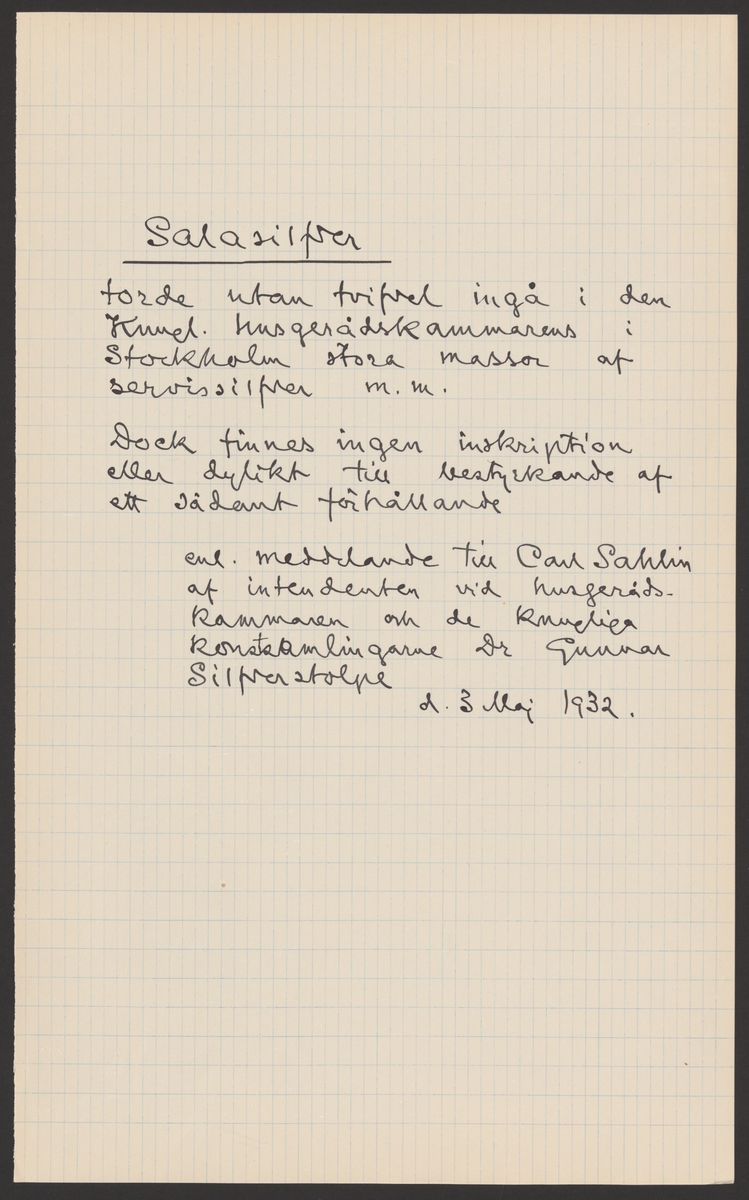 Salasilfver
torde utan tvifvel ingå i den
Kungl. Husgerådskammarens i
Stockholm stora massor af
servissilfver m.m.
Dock finnes ingen inskription
eller dylikt till bestyrkande af
ett sådant förhållande
enl. meddelande till Carl Sahlin
af intendenten vid husgeråds-
kammaren och de kungliga
konstsamlingarne Dr Gunnar
Silfverstolpe
d. 3 Maj 1932.